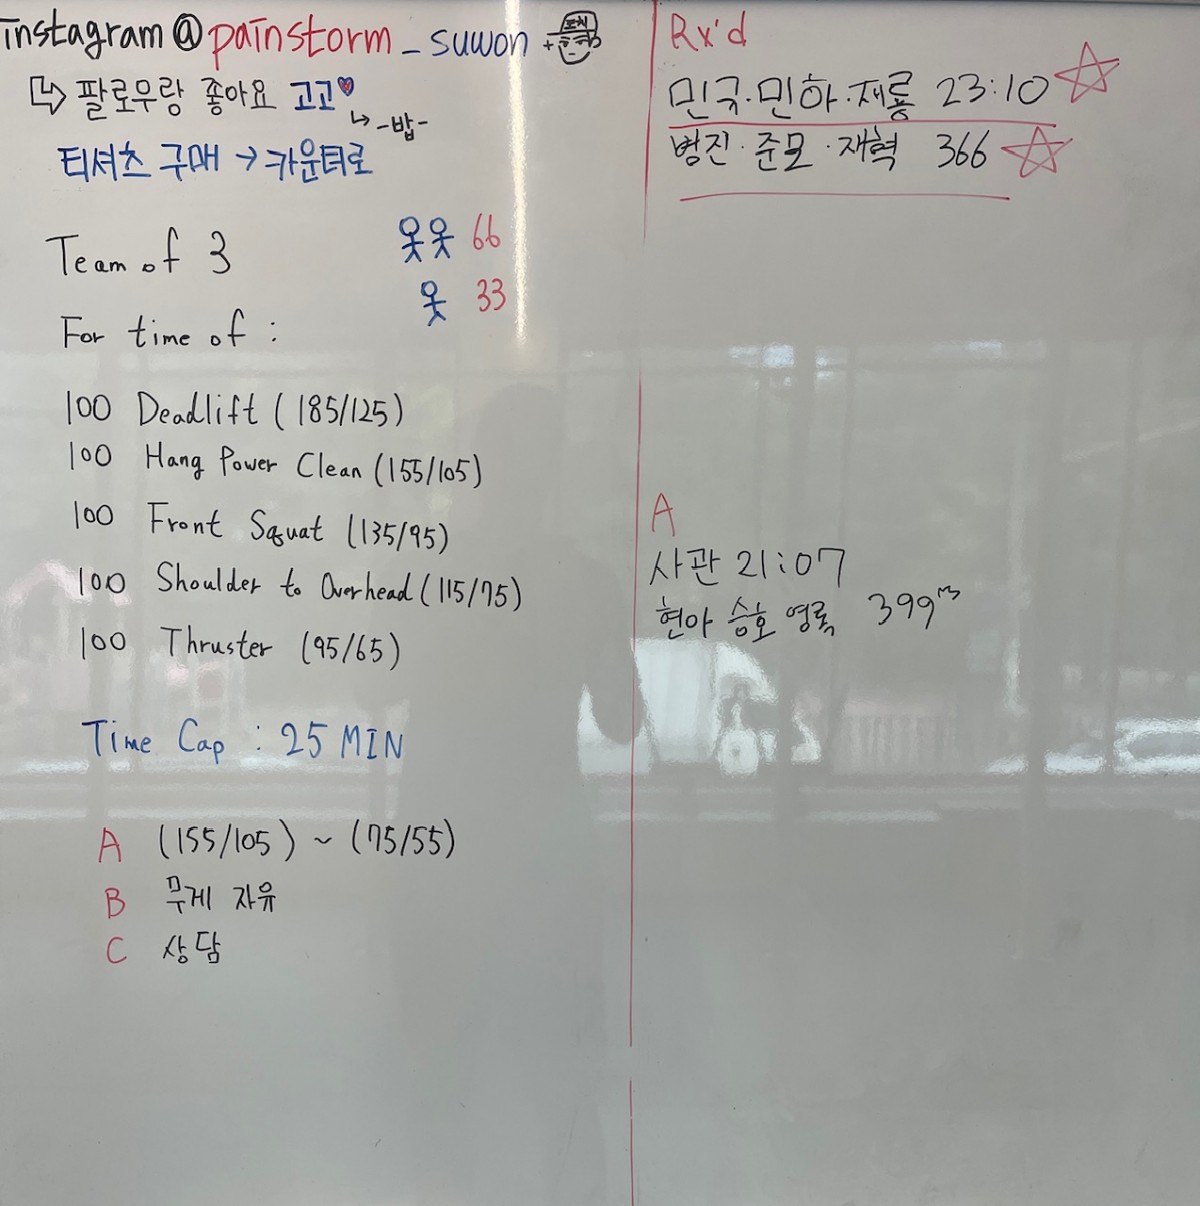 instagram@painstorm_suwon
팔로우랑 좋아요 고고
-밥-
티셔츠 구매 → 카운터로
Team of 3
66
33
For time of :
100 Deadlift (185/125)
100 Hang Power Clean (155/105)
100 Front Squat (135/95)
100 Shoulder to Overhead (115/75)
100 Thruster (95/65)
Time Cap : 25 MIN
A (155/105) ~ (75/55)
B 무게 자유
C 상담
Rx'd
민국·민하·재룡 23:10
병진·준모·재혁 366
A
사관 21:07
현아 승호 영록 399